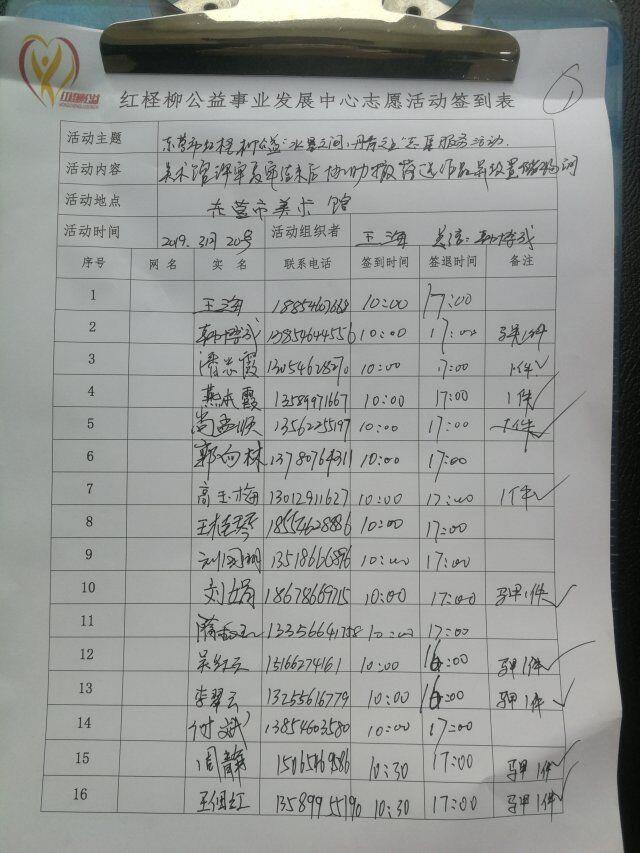 红柽柳公益
红柽柳公益事业发展中心志愿活动签到表
1
活动主题 东营市红柽柳公益"水墨之间,丹青之上"志愿服务活动.
活动内容 美术馆评审复审结束后协助撤
活动地点 东营市美术馆
活动时间 2019.3月20号 活动组织者 王海
序号 网名 实名 联系电话 签到时间 签退时间 备注
1 王海 10:00 17:00
2 13854644556 10:00 17:00
3 潘志霞 13054628270 10:00 17:00 1件✓
4 燕永霞 13589971667 10:00 17:00 1件✓
5 尚孟顺 13562255197 10:00 17:00 1件✓
6 郭向林 13780764311 10:00 17:00
7 高玉梅 13012911627 10:00 17:00 1件✓
8 王桂琴 18554628836 10:00 17:00
9 刘国明 13518666896 10:00 17:00
10 刘娟 18678669715 10:00 17:00 马甲1件✓
11 10:00 17:00
12 吴红云 15166274161 10:00 16:00 马甲1件✓
13 李翠云 13255616779 10:00 16:00 马甲1件✓
14 付斌 13854603580 10:00 17:00
15 周静 10:30 17:00 马甲1件✓
16 王佃红 13589955190 10:30 17:00 马甲1件✓